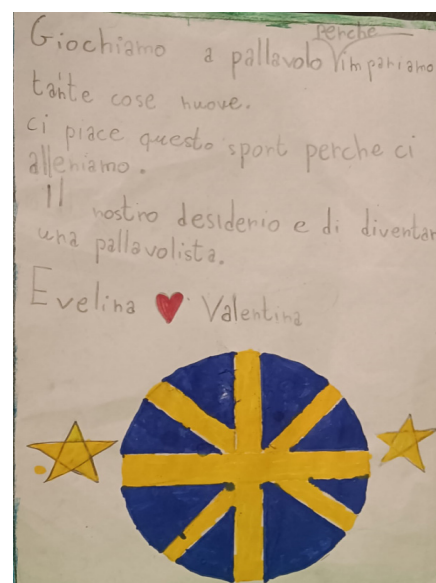 Giochiamo a pallavolo perche impariamo
tante cose nuove.
ci piace questo sport perche ci
alleniamo.
Il nostro desiderio e di diventar
una pallavolista.
Evelina Valentina